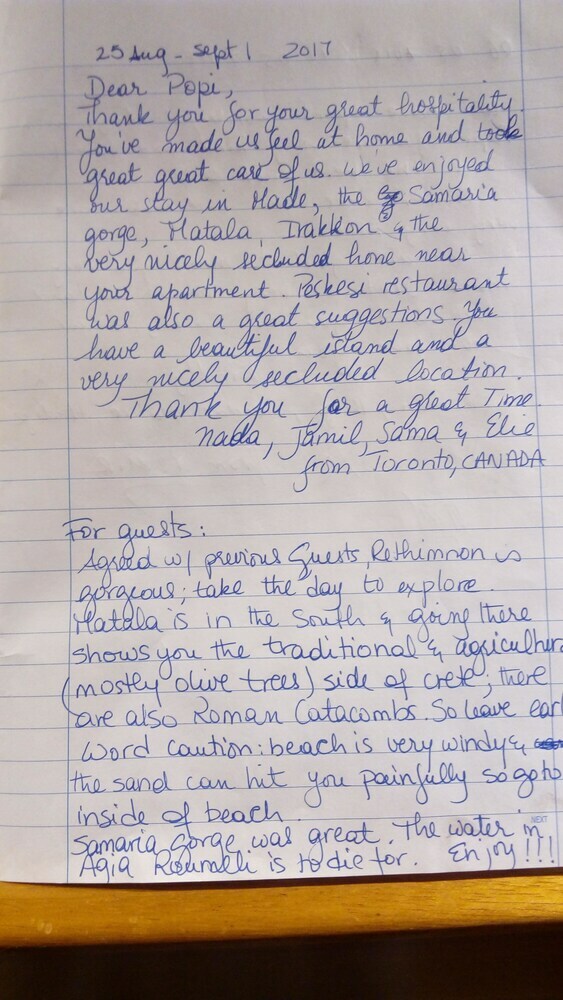 25 Aug - Sept 1 2017
Dear Popi,
Thank you for your great hospitality.
You've made us feel at home and took
great great care of us. We've enjoyed
our stay in Made, the Samaria
gorge, Matala, Irakkon & the
very nicely secluded home near
your apartment. Peskesi restaurant
was also a great suggestions. You
have a beautiful island and a
very nicely secluded location.
Thank you for a great Time.
Nada, Jamil, Sama & Elie
from Toronto, CANADA
For guests:
Agreed w/ previous Guests, Rethimnon is
gorgeous; take the day to explore.
Matala is in the South & going there
shows you the traditional & agricultur
(mostly olive trees) side of crete; there
are also Roman Catacombs. So leave earl
Word caution: beach is very windy &
the sand can hit you painfully so go to
inside of beach.
Samaria Gorge was great. The water in
Agia Roumeli is to die for. Enjoy!!!
NEXT